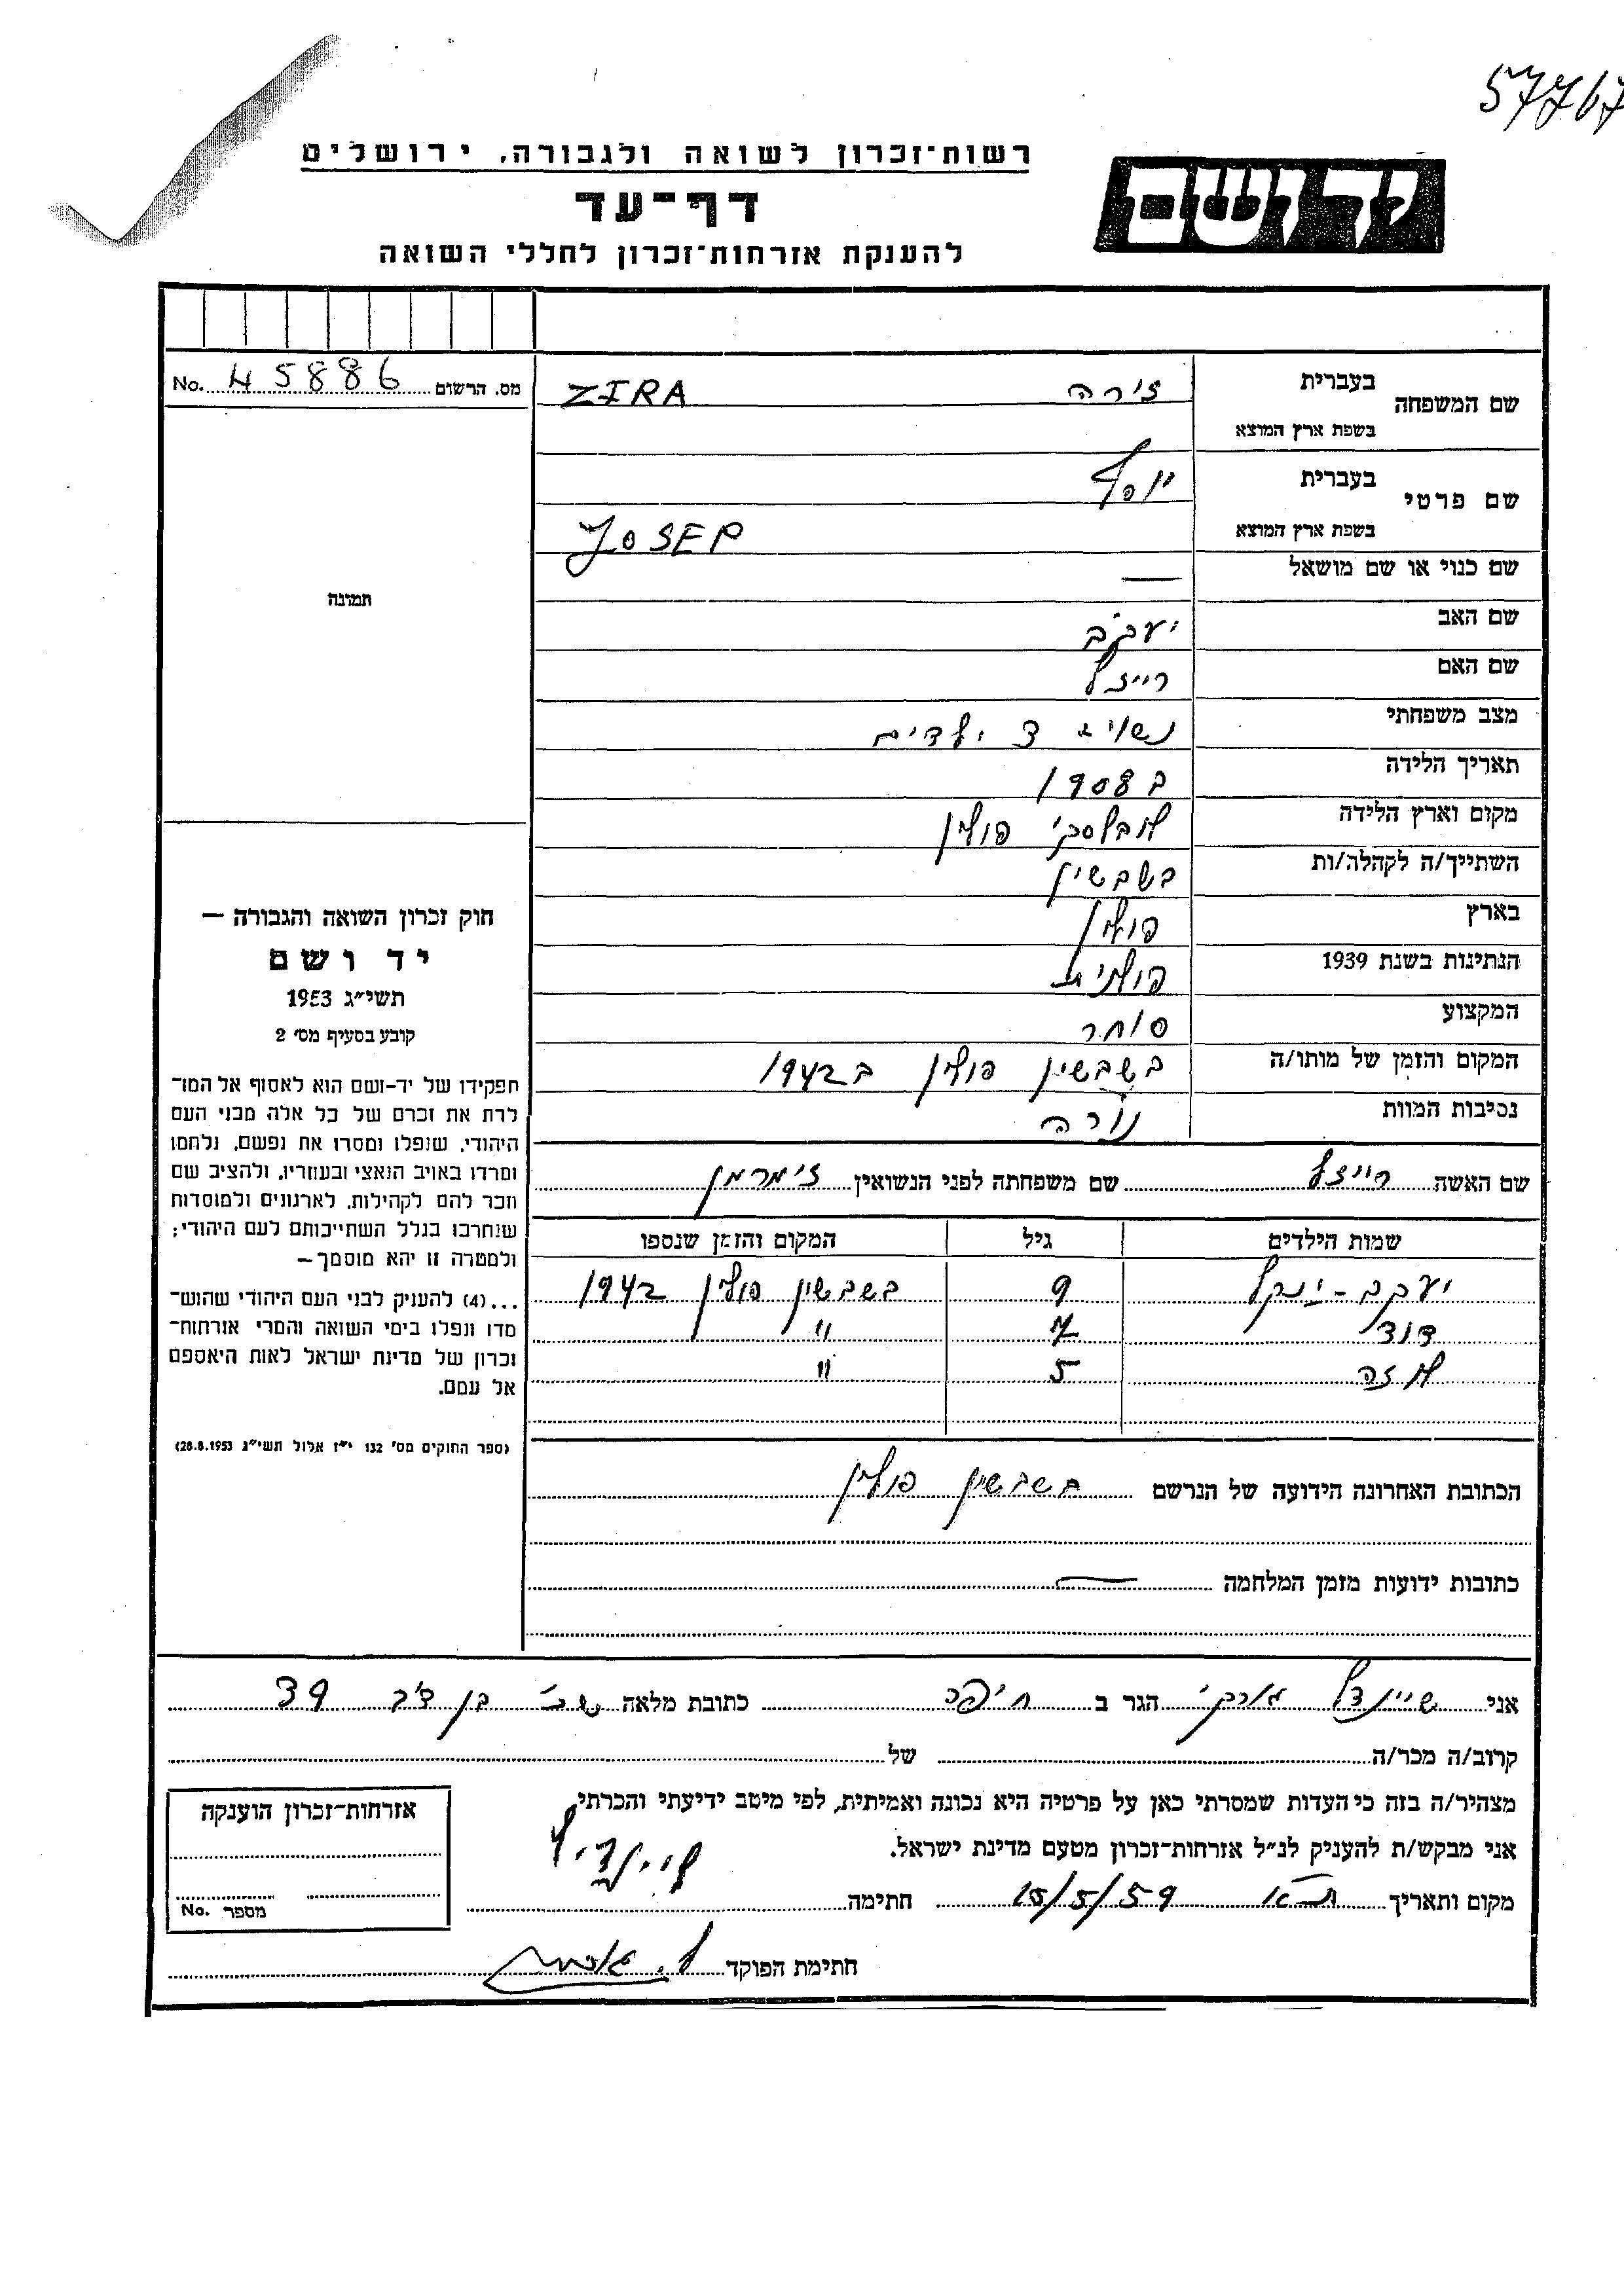 57767
רשות־זכרון לשואה ולגבורה, ירושלים
יד ושם
דף־עד
להענקת אזרחות־זכרון לחללי השואה
מס. הרשום 45886 No.
שם המשפחה בעברית זירה ZIRA
בשפת ארץ המוצא
שם פרטי בעברית יוסף
בשפת ארץ המוצא JOSEP
שם כנוי או שם מושאל —
שם האב יעקב
שם האם רייזל
מצב משפחתי נשוי + 3 ילדים
תאריך הלידה ב 1908
מקום וארץ הלידה פולין
השתייך/ה לקהלה/ות בשבשין
בארץ פולין
הנתינות בשנת 1939 פולנית
המקצוע סוחר
המקום והזמן של מותו/ה בשבשין פולין ב 1942
נסיבות המוות נורה
תמונה
חוק זכרון השואה והגבורה —
יד ושם
תשי״ג 1953
קובע בסעיף מס׳ 2
תפקידו של יד-ושם הוא לאסוף אל המו־
לדת את זכרם של כל אלה מבני העם
היהודי, שנפלו ומסרו את נפשם, נלחמו
ומרדו באויב הנאצי ובעוזריו, ולהציב שם
וזכר להם לקהילות, לארגונים ולמוסדות
שנחרבו בגלל השתייכותם לעם היהודי;
ולמטרה זו יהא מוסמך —
...(4) להענק לבני העם היהודי שהוש־
מדו ונפלו בימי השואה והמרי אזרחות־
זכרון של מדינת ישראל לאות היאספם
אל עמם.
(ספר החוקים מס׳ 132 י״ז אלול תשי״ג 28.8.1953)
שם האשה רייזל שם משפחתה לפני הנשואין זימרמן
שמות הילדים גיל המקום והזמן שנספו
יעקב - ינקל 9 בשבשין פולין 1942
דוד 7 "
לאה 5 "
הכתובת האחרונה הידועה של הנרשם בשבשין פולין
כתובות ידועות מזמן המלחמה —
אני שיינדל הגר ב חיפה כתובת מלאה 39
קרוב/ה מכר/ה של
מצהיר/ה בזה כי העדות שמסרתי כאן על פרטיה היא נכונה ואמיתית, לפי מיטב ידיעתי והכרתי.
אני מבקש/ת להעניק לנ״ל אזרחות־זכרון מטעם מדינת ישראל.
מקום ותאריך 15/5/59 חתימה שיינדיל
חתימת הפוקד
אזרחות־זכרון הוענקה
מספר No.